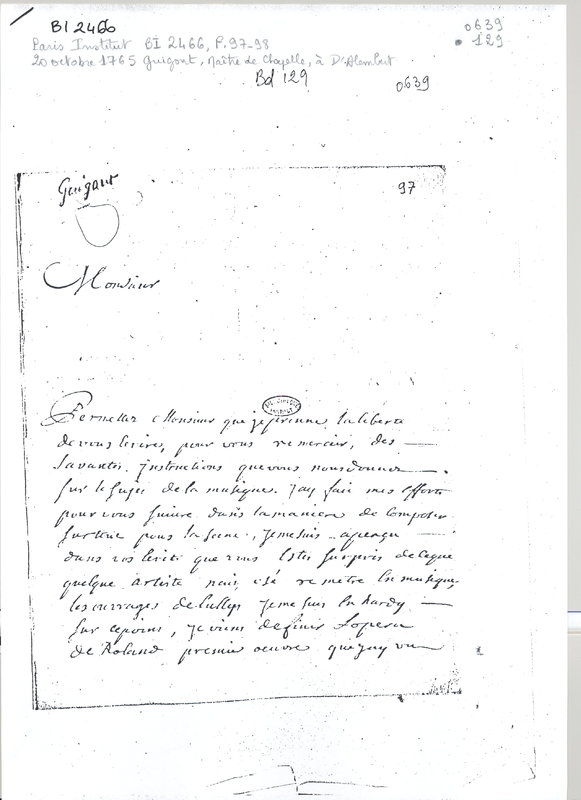 BI 2466
0639
129
Paris Institut BI 2466, P. 97-98
20 octobre 1765 Guigant, Maître de Chapelle, à D'Alembert
Bd 129
0639
Guigant
97
Monsieur
Permettez Monsieur que je prenne la liberté
de vous lecrires, pour vous remercier, des
savantes instructions que vous nous donnez
sur le sujet de la musique. J'ay fait mes efforts
pour vous suivre dans la maniere de composer
surtout pour la scene, je me suis aperçu
dans vos Ecrits que vous Etes surpris de ce que
quelque artiste n'ait osé remetre En musique
les ouvrages de lully je me suis En hardy
sur ce point, je viens de finir Lopera
de Roland premier oeuvre que j'ay